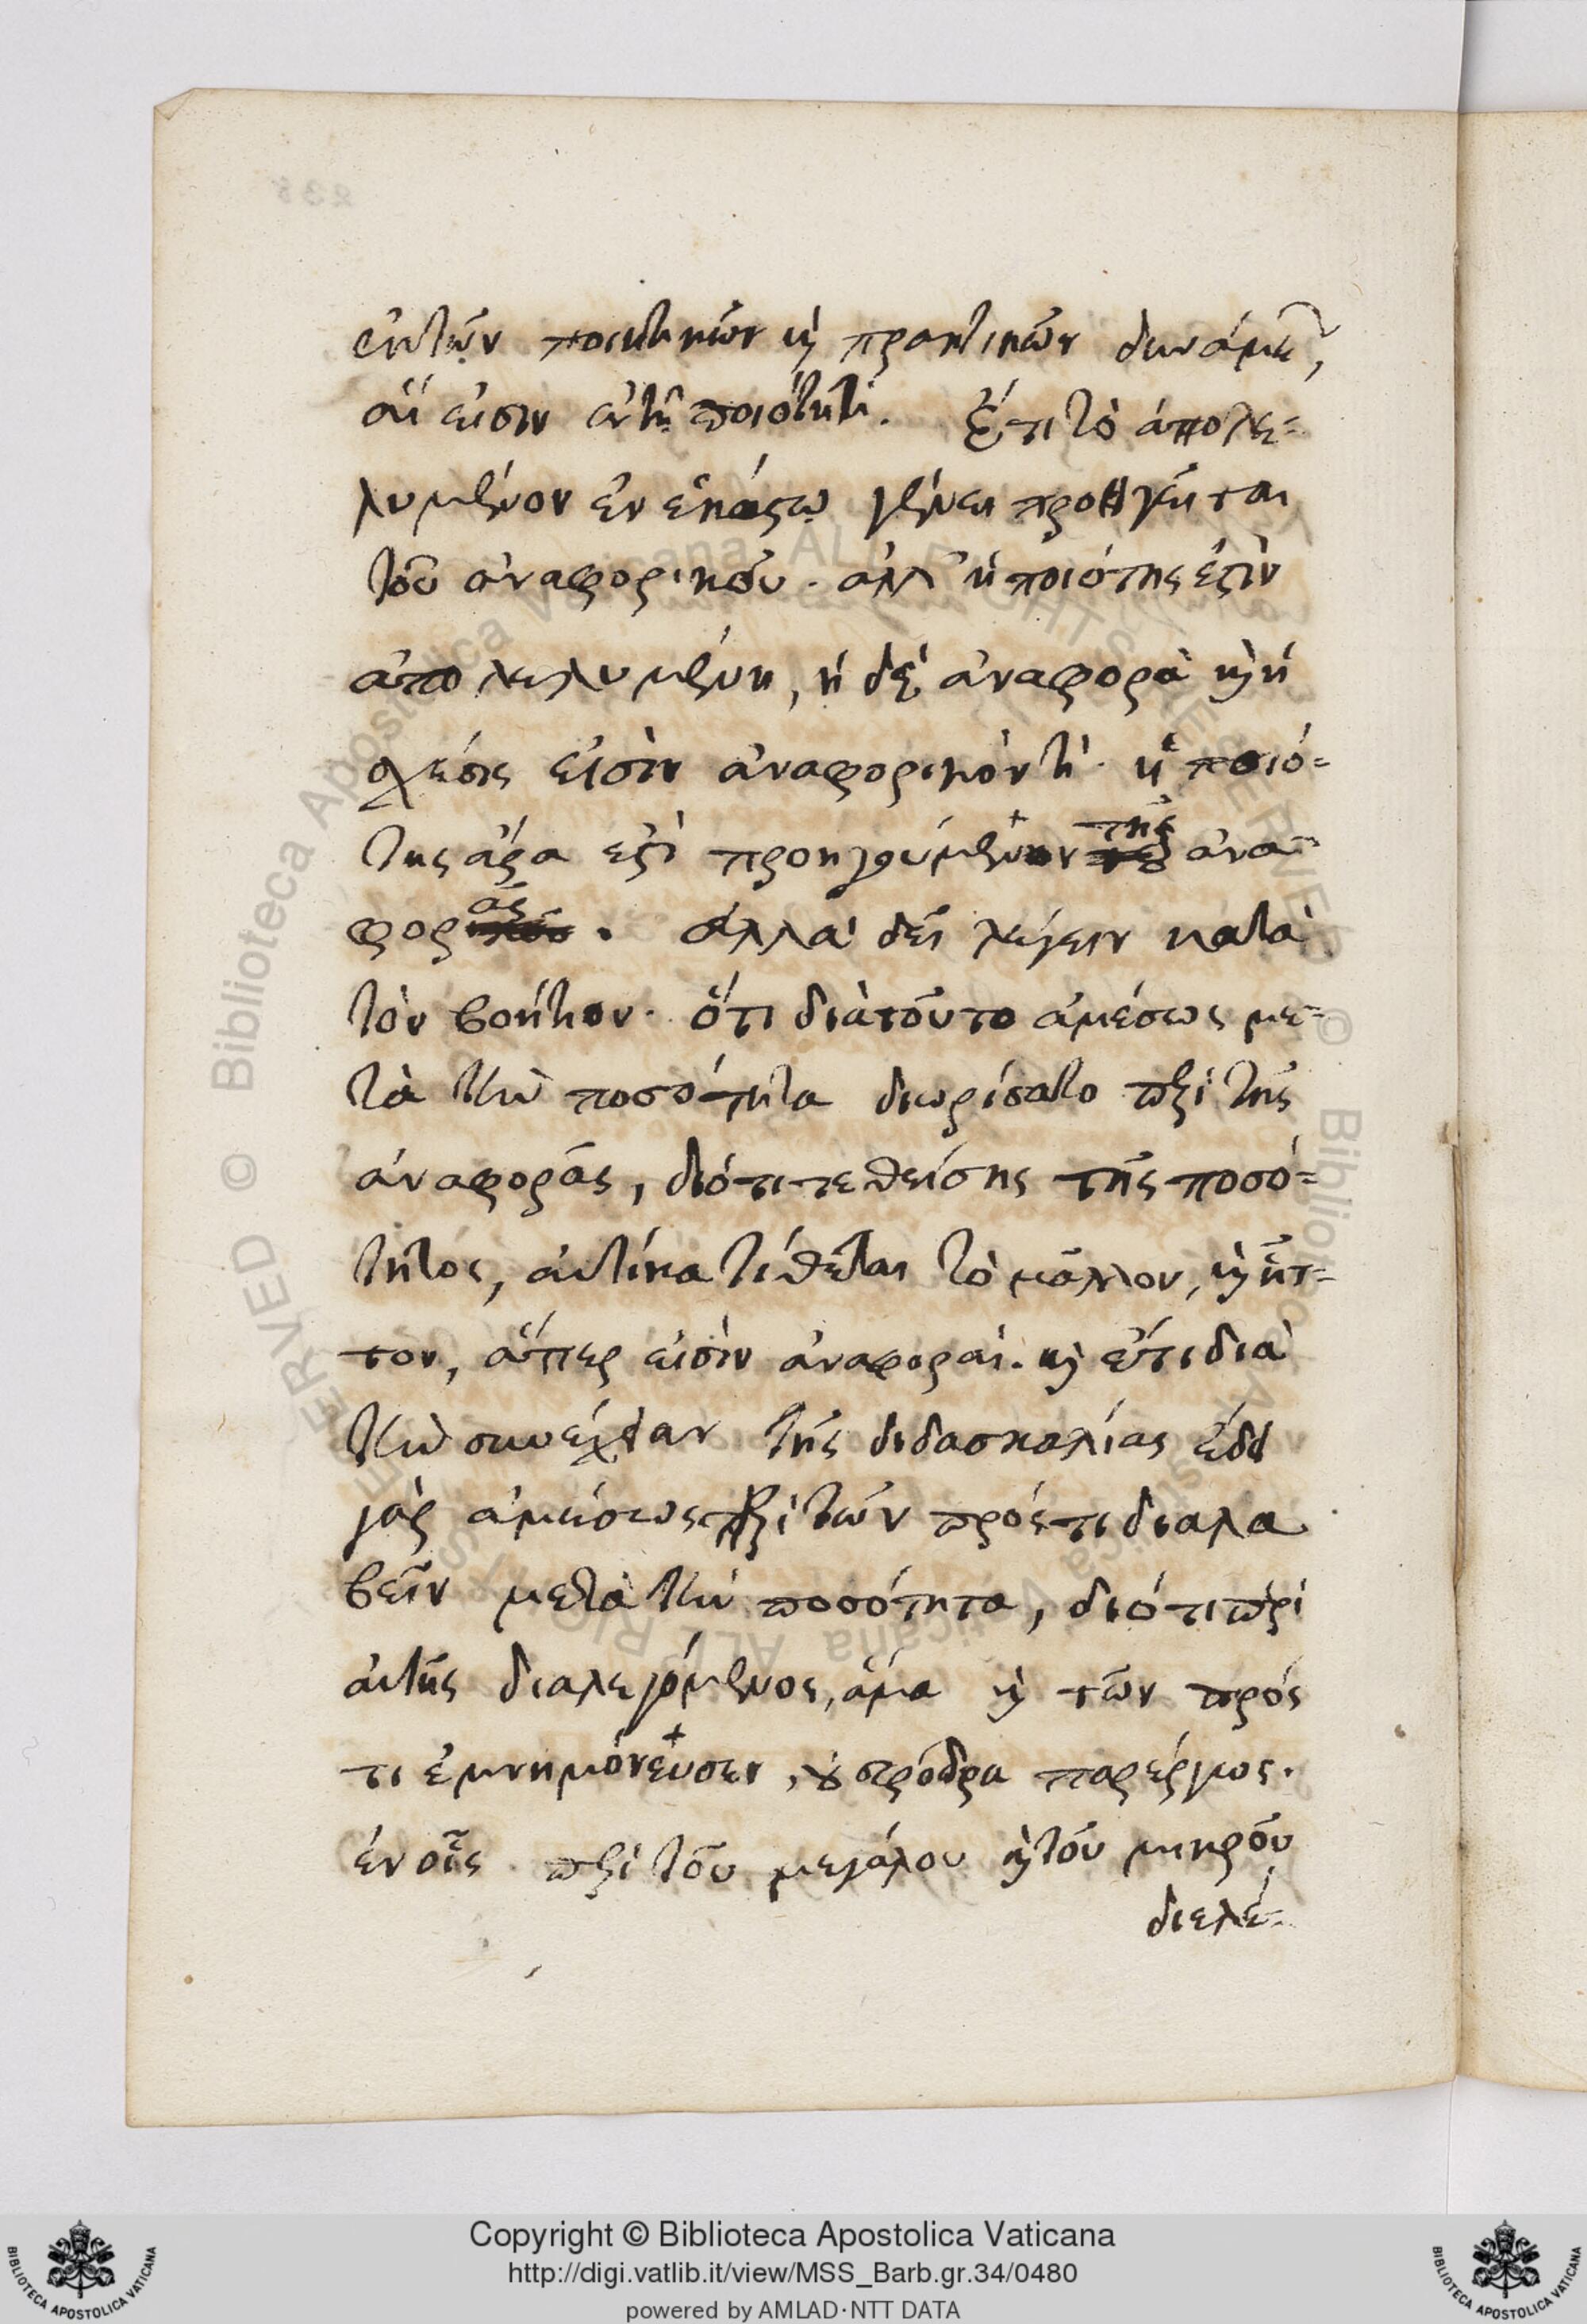 ἐκ τῶν ποιητικῶν καὶ πρακτικῶν δυνάμεων,
αἵ εἰσιν ἐν τῇ ποιότητι. Ἔτι τὸ ἀπολε=
λυμένον ἐν ἑκάστῳ γένει προηγεῖται
τοῦ ἀναφορικοῦ. ἀλλ' ἡ ποιότης ἐστὶν
ἀπολελυμένη, ἡ δὲ ἀναφορὰ καὶ ἡ
σχέσις εἰσὶν ἀναφορικόν τι. ἡ ποιό=
της ἄρα ἐστὶ προηγούμενον τῆς ἀνα=
φορᾶς. ἀλλὰ δεῖ λέγειν κατὰ
τὸν βοήτιον. ὅτι διὰ τοῦτο ἀμέσως με=
τὰ τὴν ποσότητα διωρίσατο περὶ τῆς
ἀναφορᾶς, διότι τεθείσης τῆς ποσό=
τητος, αὐτίκα τίθεται τὸ μᾶλλον, καὶ ἧτ=
τον, ἅπερ εἰσὶν ἀναφοραί. καὶ ἔτι διὰ
τὴν συνέχειαν τῆς διδασκαλίας ἔδει
γὰρ ἀμέσως περὶ τῶν πρός τι διαλα
βεῖν μετὰ τὴν ποσότητα, διότι περὶ
αὐτῆς διαλεγόμενος, ἅμα καὶ τῶν πρός
τι ἐμνημόνευσεν, οὐ σφόδρα παρέργως.
ἐν οἷς περὶ τοῦ μεγάλου καὶ τοῦ μικροῦ
διελέ=
Copyright © Biblioteca Apostolica Vaticana
http://digi.vatlib.it/view/MSS_Barb.gr.34/0480
powered by AMLAD·NTT DATA